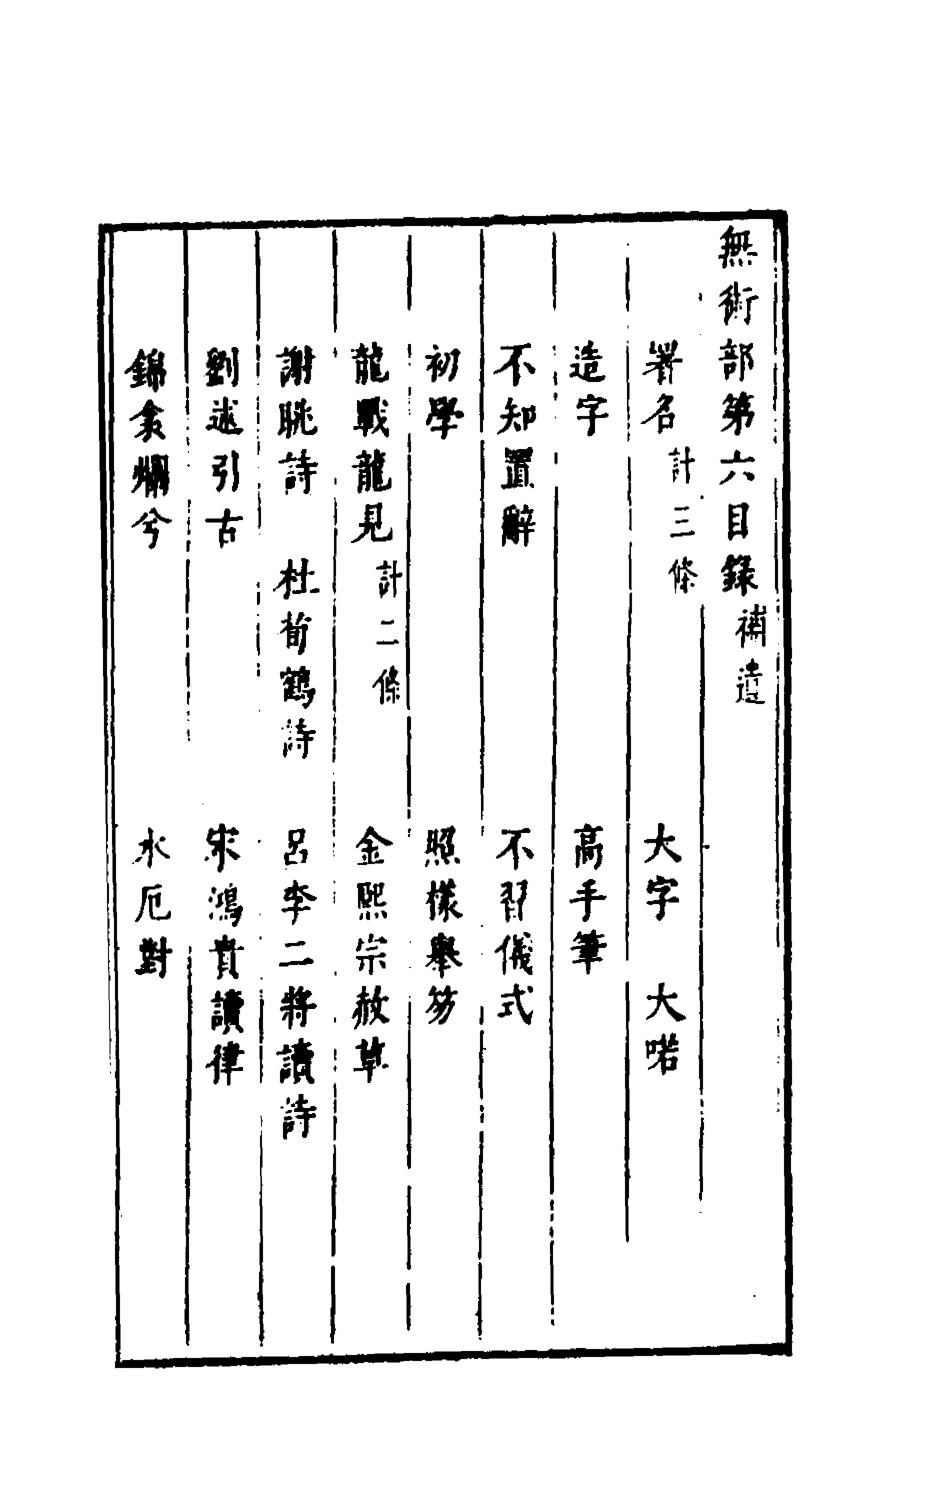 無術部第六目錄補遺
署名計三條 大字 大喏
造字 高手筆
不知置辭 不習儀式
初學 照樣舉笏
龍戰龍見計二條 金熙宗赦草
謝眺詩 杜荀鶴詩 呂李二將讀詩
劉述引古 宋鴻貴讀律
錦衾爛兮 水厄對